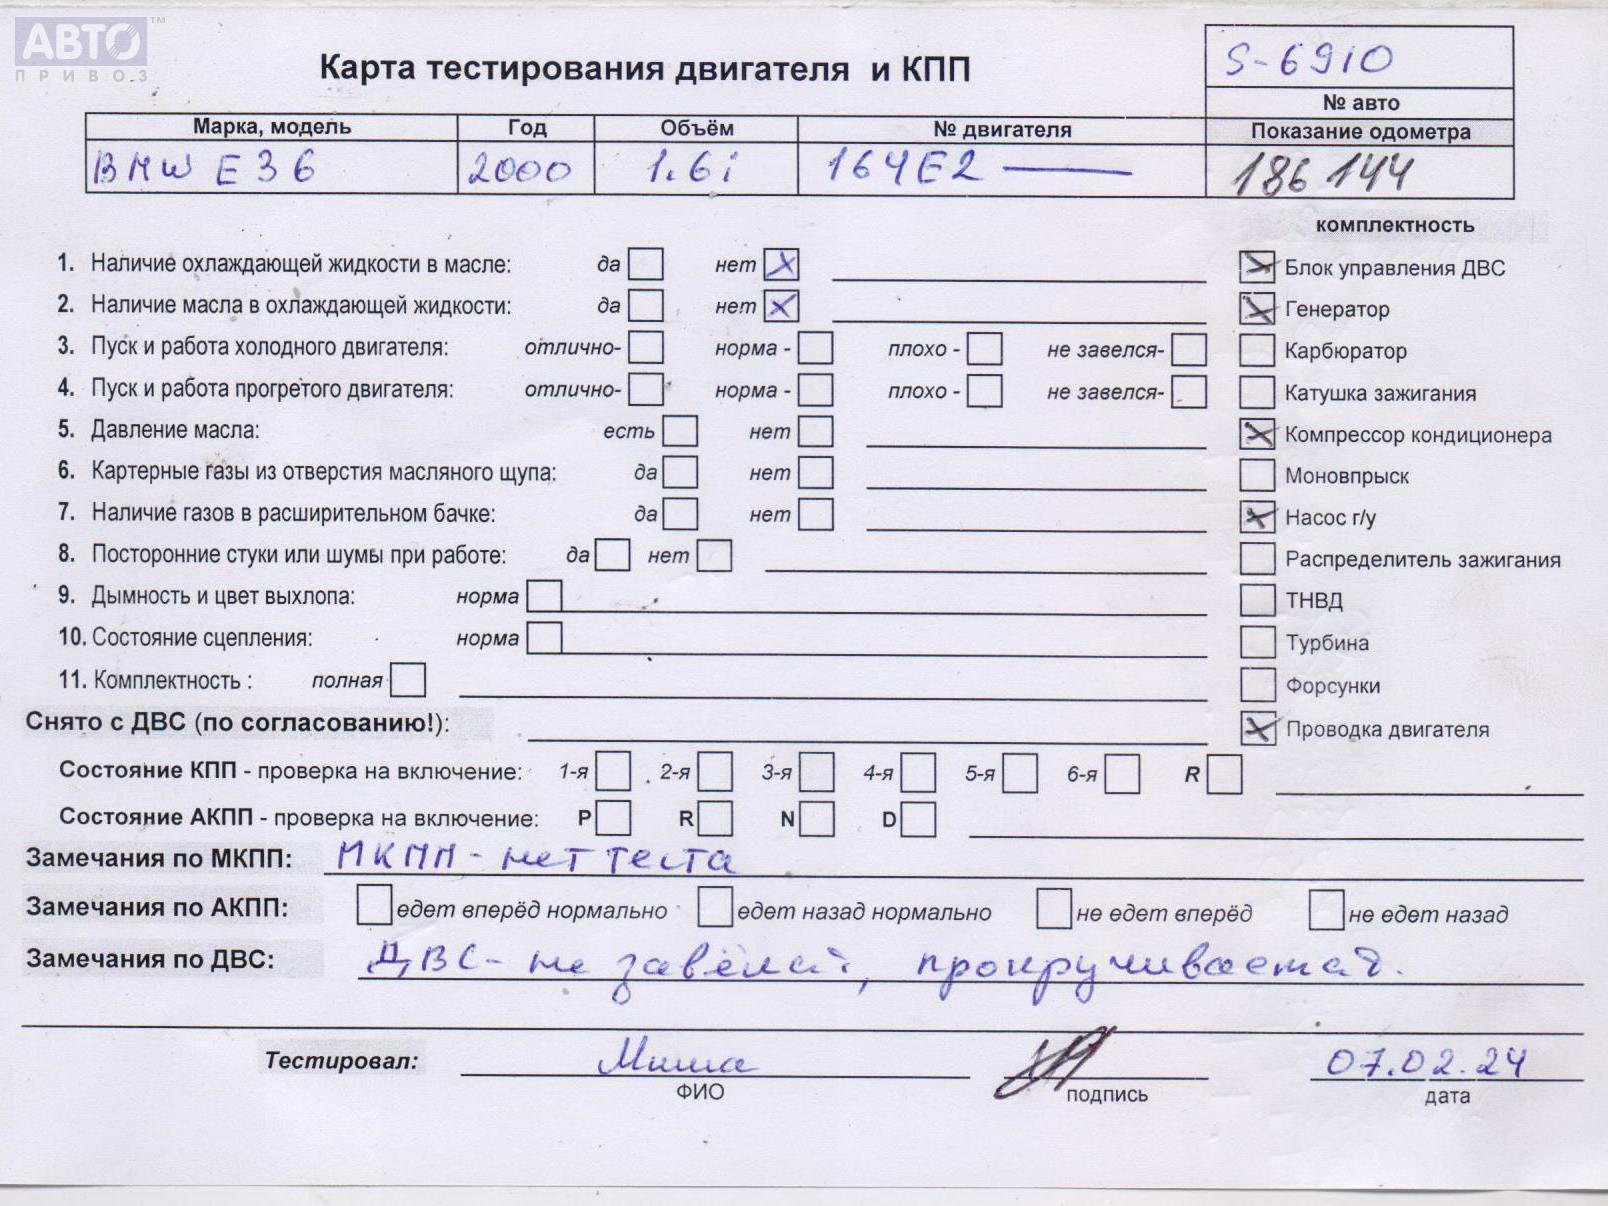 АВТО™
ПРИВОЗ
Карта тестирования двигателя и КПП
S-6910
№ авто
Марка, модель Год Объём № двигателя Показание одометра
BMW E36 2000 1.6i 164E2 — 186144
комплектность
1. Наличие охлаждающей жидкости в масле: да нет X
Блок управления ДВС
2. Наличие масла в охлаждающей жидкости: да нет X
Генератор
3. Пуск и работа холодного двигателя: отлично- норма - плохо - не завелся-
Карбюратор
4. Пуск и работа прогретого двигателя: отлично- норма - плохо - не завелся-
Катушка зажигания
5. Давление масла: есть нет
Компрессор кондиционера
6. Картерные газы из отверстия масляного щупа: да нет
Моновпрыск
7. Наличие газов в расширительном бачке: да нет
Насос г/у
8. Посторонние стуки или шумы при работе: да нет
Распределитель зажигания
9. Дымность и цвет выхлопа: норма
ТНВД
10. Состояние сцепления: норма
Турбина
11. Комплектность : полная
Форсунки
Снято с ДВС (по согласованию!):
Проводка двигателя
Состояние КПП - проверка на включение: 1-я 2-я 3-я 4-я 5-я 6-я R
Состояние АКПП - проверка на включение: P R N D
Замечания по МКПП: МКПП - нет теста
Замечания по АКПП: едет вперёд нормально едет назад нормально не едет вперёд не едет назад
Замечания по ДВС: ДВС - не завёлся, прокручивается.
Тестировал: Миша 07.02.24
ФИО подпись дата